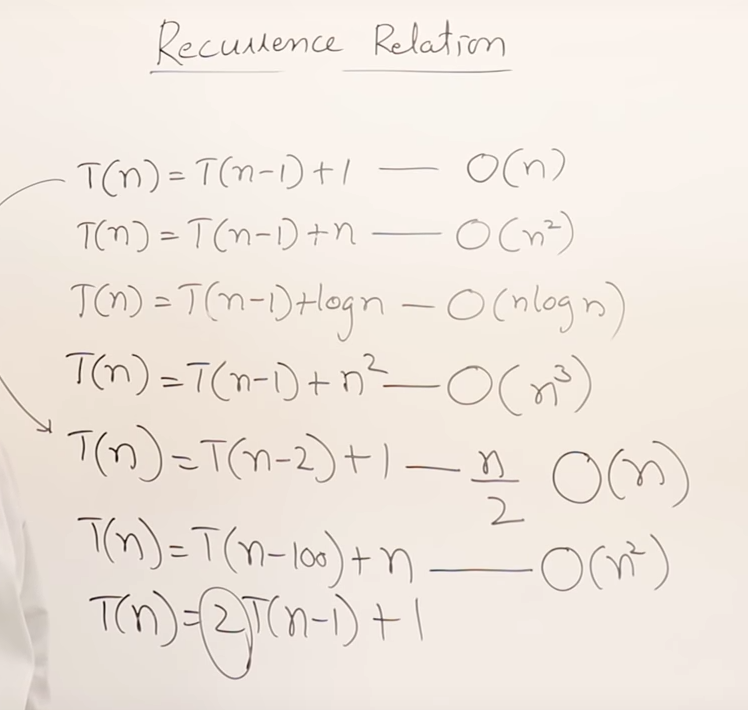 Recurrence Relation
T(n) = T(n-1) + 1 — O(n)
T(n) = T(n-1) + n — O(n²)
T(n) = T(n-1) + log n — O(n log n)
T(n) = T(n-1) + n² — O(n³)
T(n) = T(n-2) + 1 — n/2 O(n)
T(n) = T(n-100) + n — O(n²)
T(n) = 2T(n-1) + 1